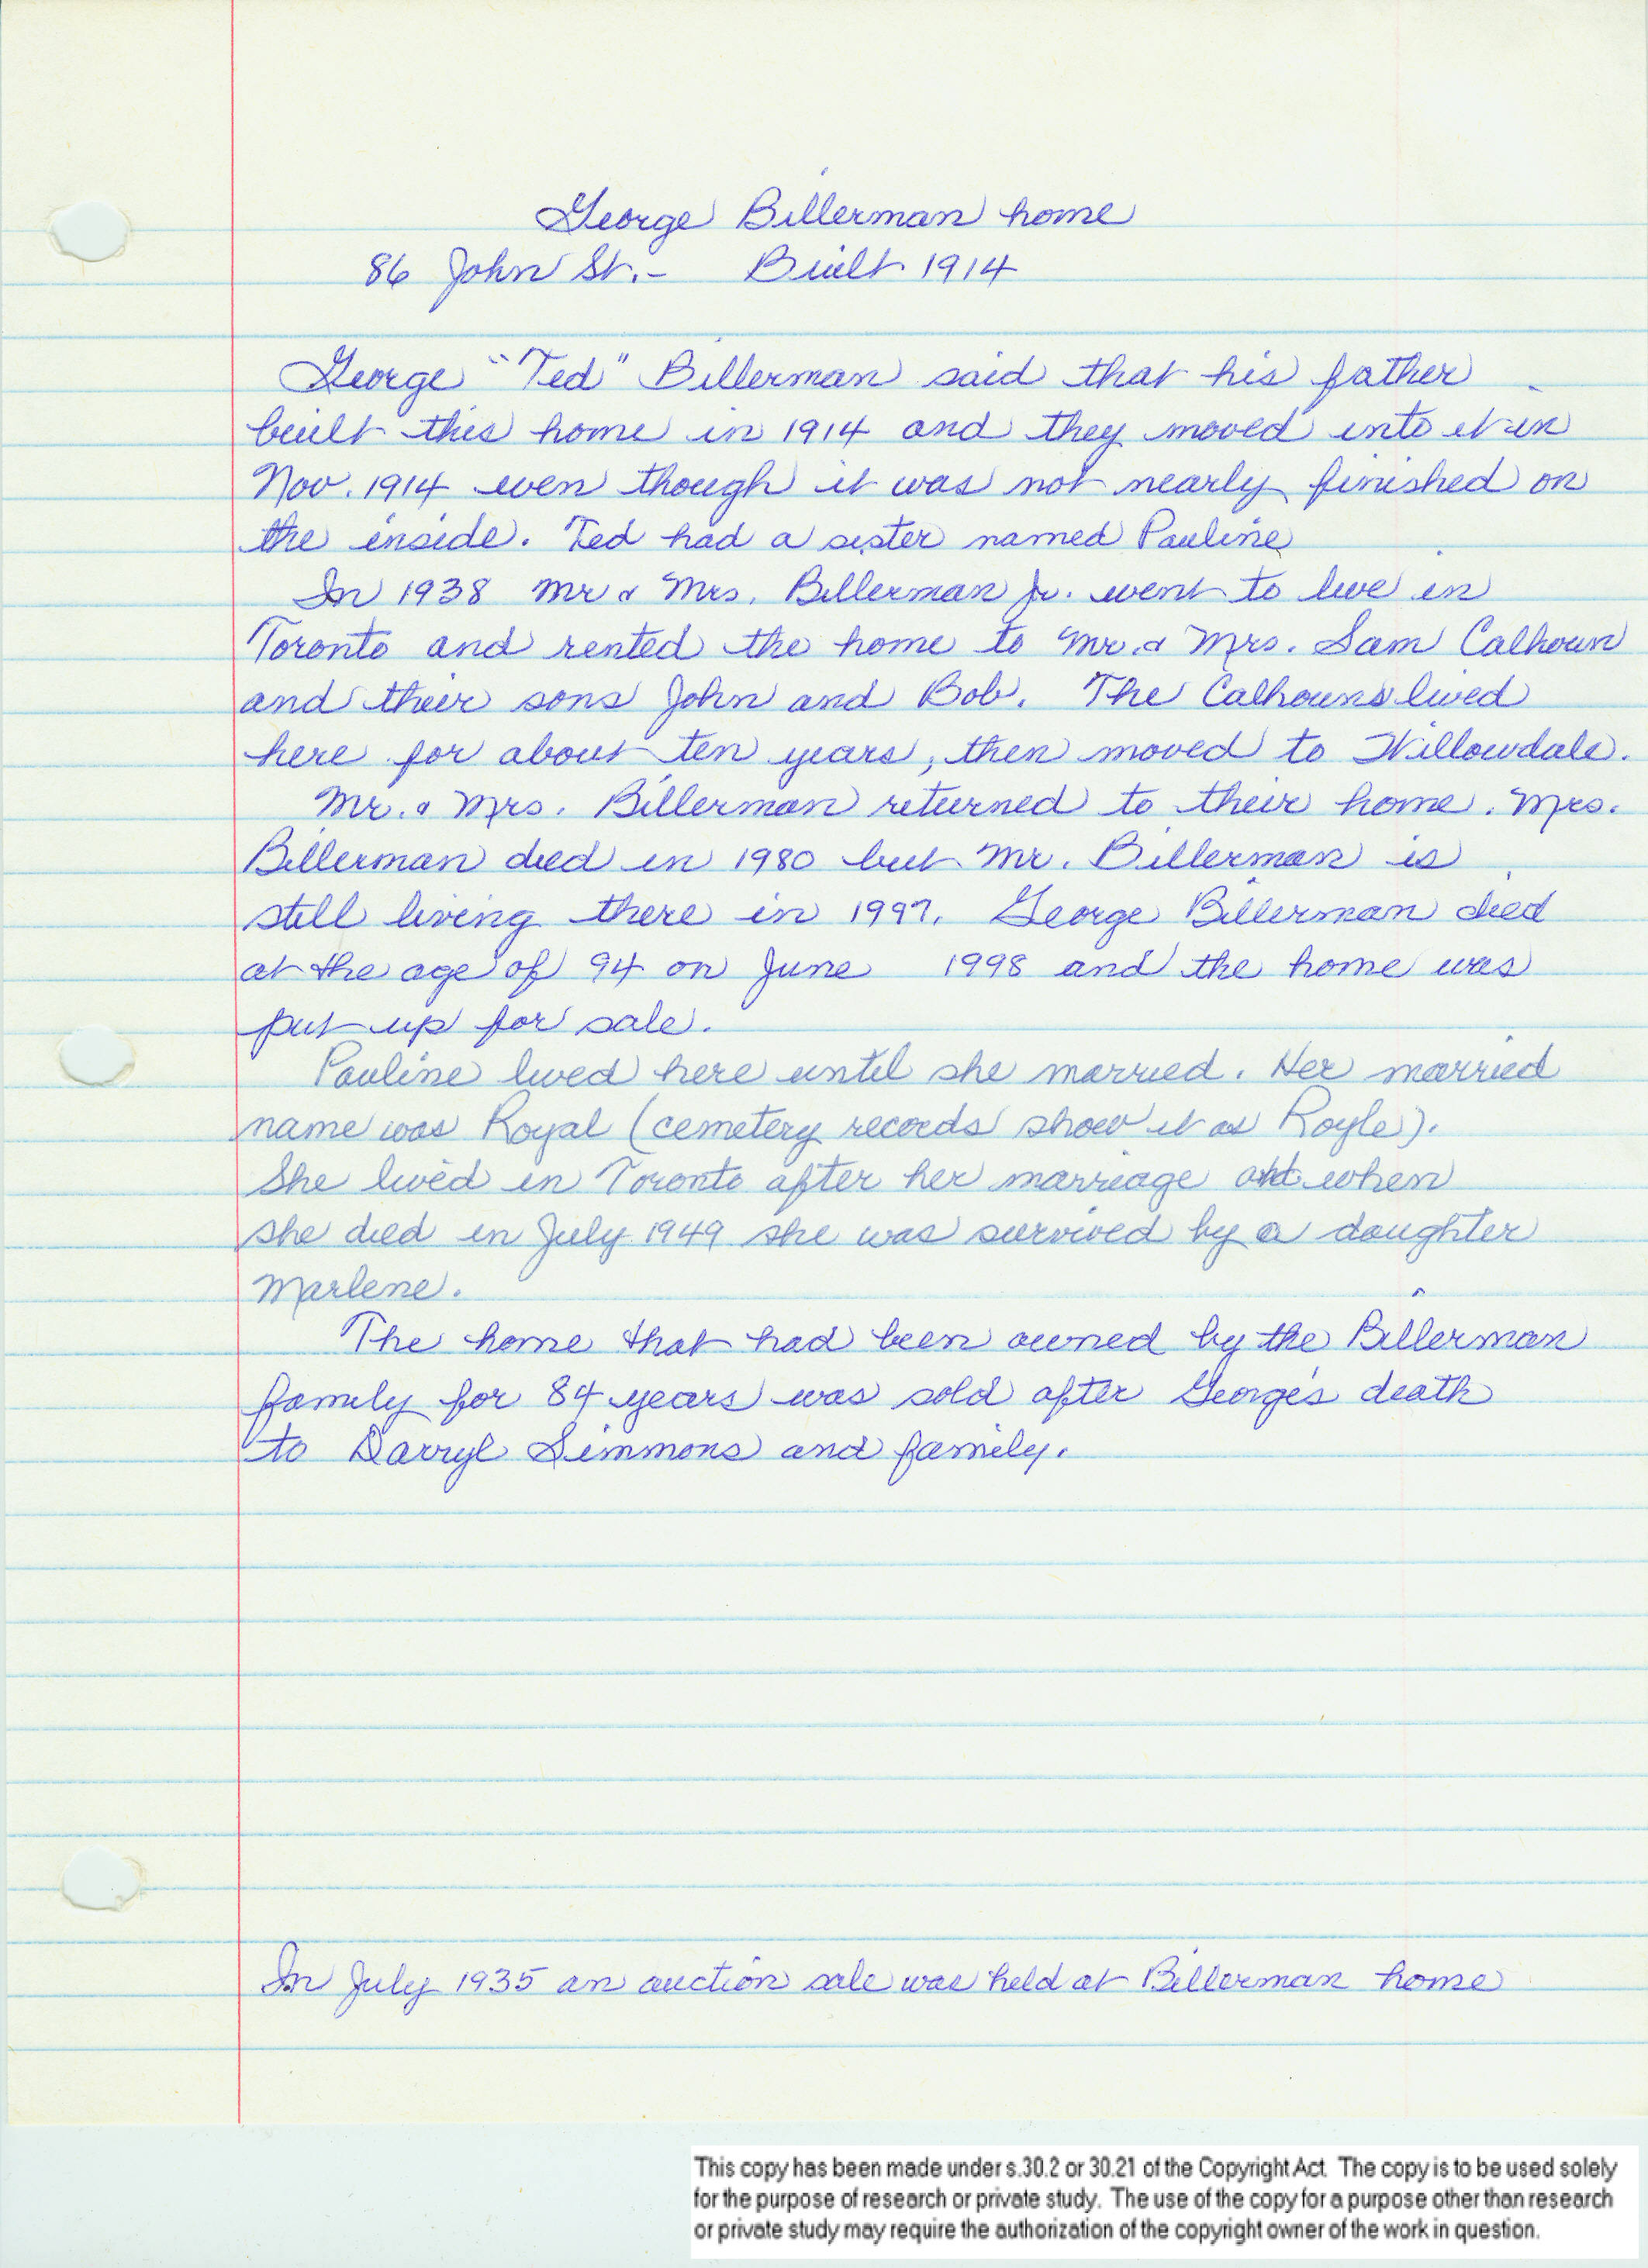 George Billerman home
86 John St. - Built 1914
George "Ted" Billerman said that his father
built this home in 1914 and they moved into it in
Nov. 1914 even though it was not nearly finished on
the inside. Ted had a sister named Pauline
In 1938 Mr & Mrs. Billerman Jr. went to live in
Toronto and rented the home to Mr. & Mrs. Sam Calhoun
and their sons John and Bob. The Calhouns lived
here for about ten years, then moved to Willowdale.
Mr. & Mrs. Billerman returned to their home. Mrs.
Billerman died in 1980 but Mr. Billerman is
still living there in 1997. George Billerman died
at the age of 94 on June 1998 and the home was
put up for sale.
Pauline lived here until she married. Her married
name was Royal (cemetery records show it as Royle).
She lived in Toronto after her marriage and when
she died in July 1949 she was survived by a daughter
Marlene.
The home that had been owned by the Billerman
family for 84 years was sold after George's death
to Darryl Simmons and family.
In July 1935 an auction sale was held at Billerman home
This copy has been made under s.30.2 or 30.21 of the Copyright Act. The copy is to be used solely
for the purpose of research or private study. The use of the copy for a purpose other than research
or private study may require the authorization of the copyright owner of the work in question.